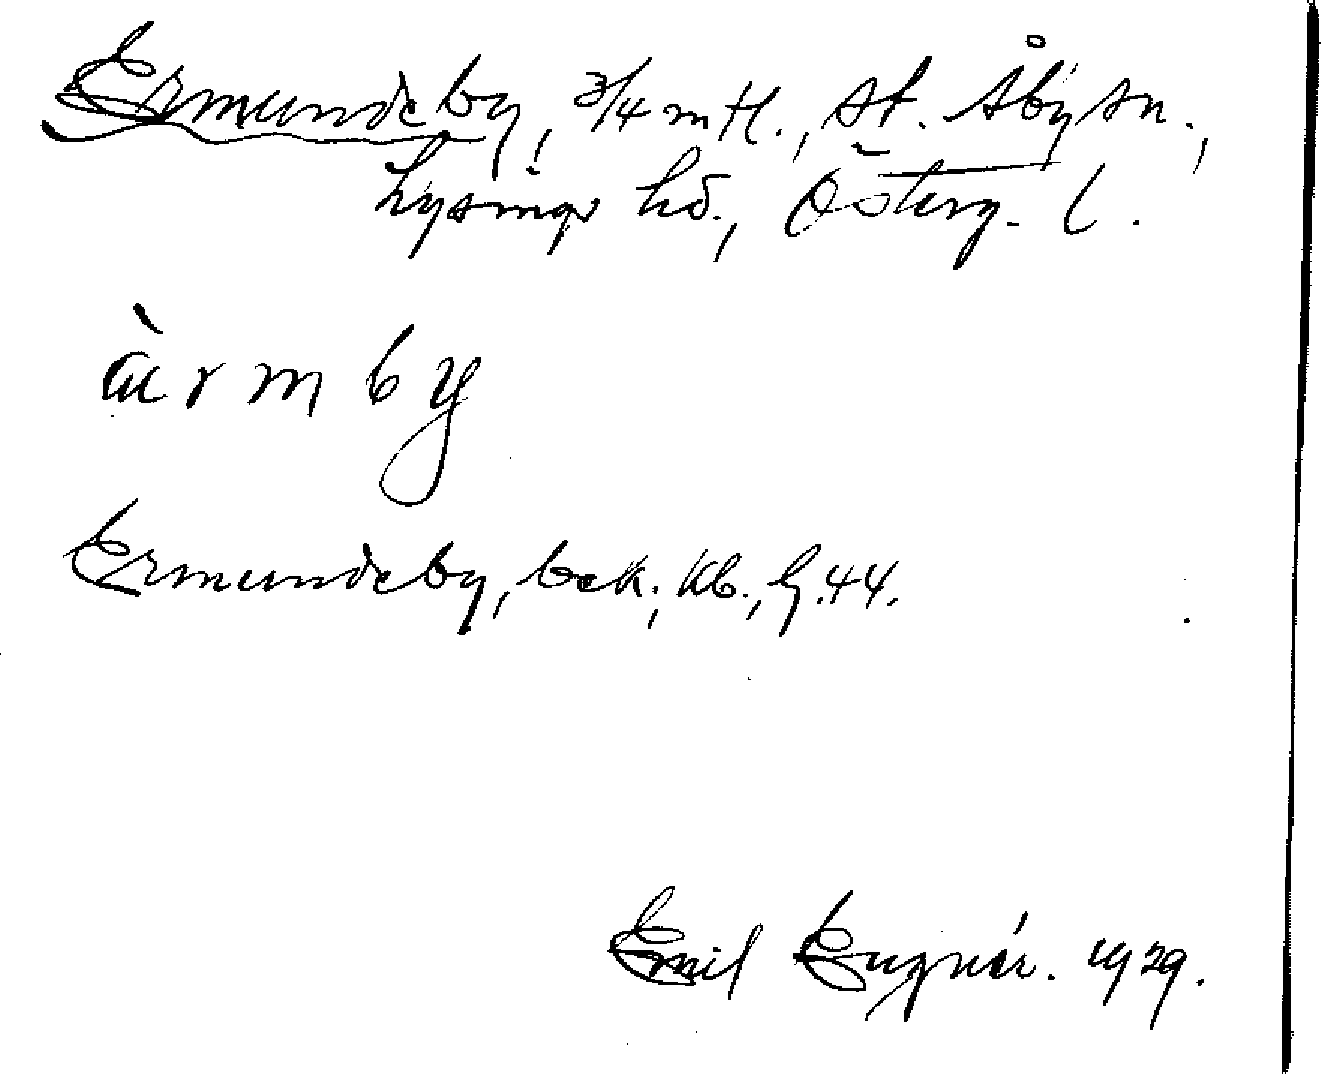 Ermundeby, 3/4 mtl., St. Åby sn.,
Lysings hd., Österg. l.
ärmby
Ermundeby, bek., kb., hg. 44.
Emil Eugnér. 1929.